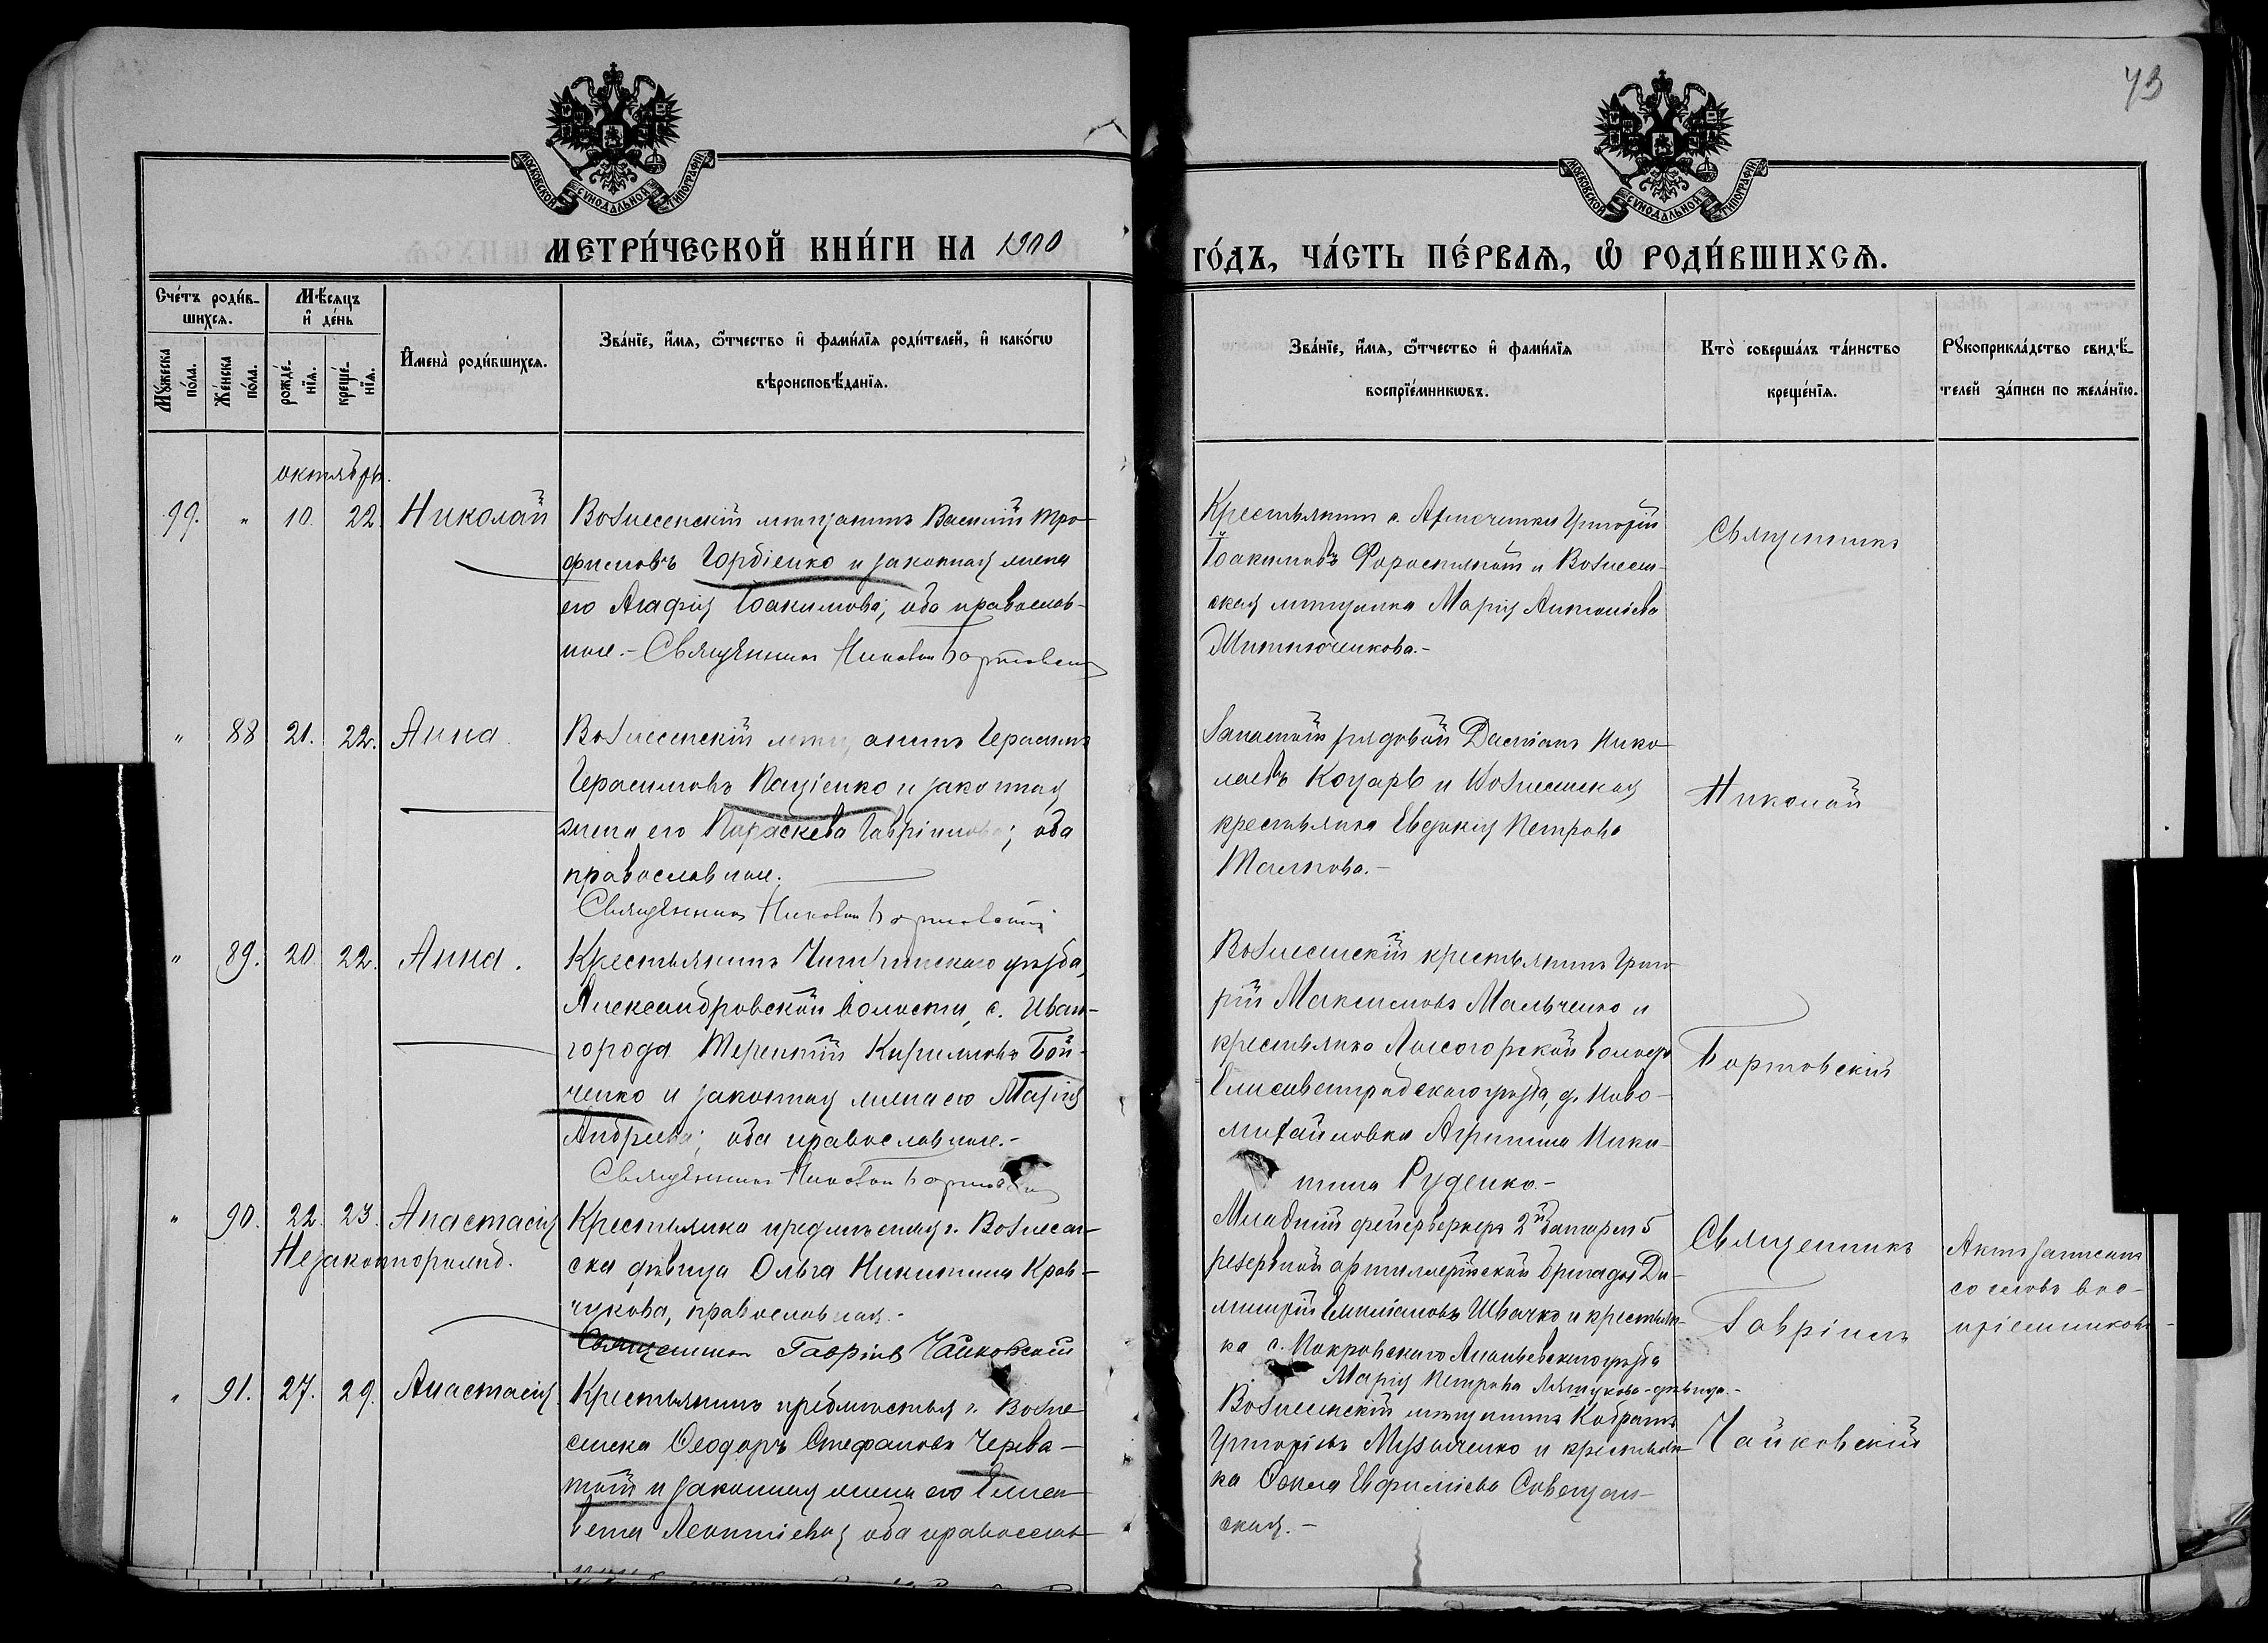 73
МОСКОВСКОЙ СУНОДАЛЬНОЙ ТИПОГРАФІИ.
МОСКОВСКОЙ СУНОДАЛЬНОЙ ТИПОГРАФІИ.
МЕТРИ́ЧЕСКОЙ КНИ́ГИ НА 1900
ГО́ДЪ, ЧА́СТЬ ПЕ́РВАѦ, Ѡ҆ РОДИ́ВШИХСѦ.
Сче́тъ роди́в-
шихсѧ.
Мѣ́сѧцъ
и҆ де́нь
Мꙋ́жеска
по́ла.
Же́нска
по́ла.
рожде́-
нїѧ.
креще́-
нїѧ.
И҆мена̀ роди́вшихсѧ.
Зва́нїе, и҆́мѧ, ѻ҆́тчество и҆ фами́лїѧ роди́телей, и҆ како́гѡ
вѣроисповѣ́данїѧ.
Зва́нїе, и҆́мѧ, ѻ҆́тчество и҆ фами́лїѧ
воспрїе́мникѡвъ.
Кто̀ соверша́лъ та́инство
креще́нїѧ.
Рꙋкоприкла́дство свидѣ́-
телей за́писи по жела́нїю.
октябрь.
99. " 10. 22. Николай
Вознесенскій мѣщанинъ Василій Тро-
фимовъ Гордіенко и законная жена
его Агафія Іоакимова; оба православ-
ные.- Священникъ Николай Бортовскій
Крестьянинъ с. Арнаутовки Григорій
Іоакимовъ и Вознесен-
ская мѣщанка Марія Антоніева
Священникъ
" 88 21. 22. Анна
Вознесенскій мѣщанинъ Герасимъ
Герасимовъ Паціенко и законная
жена его Параскева Гавріилова; оба
православные.
Священникъ Николай Бортовскій
Запасной рядовой Даміанъ Нико-
лаевъ Козарь и Вознесенская
крестьянка Евдокія Петрова
Николай
" 89. 20. 22. Анна.
Крестьянинъ Чигиринскаго уѣзда,
Александровской волости, с. Иван-
города Терентій Кирилловъ Бой-
ченко и законная жена его Марія
Андреева; оба православные.-
Священникъ Николай Бортовскій
Вознесенскій крестьянинъ Григо-
рій Максимовъ Мальченко и
крестьянка Лысогорской волости
Елисаветградскаго уѣзда, д. Ново-
михайловки Агрипина Ники-
тина Руденко.-
Бортовскій
" 90. 22. 23. Анастасія
Незаконнорожд.
Крестьянка предмѣстья г. Вознесен-
ска дѣвица Ольга Никитина Крав-
чукова, православная.-
Священникъ Гавріилъ Чайковскій
Младшій фейерверкеръ 2й батареи 5
резервной артиллерійской бригады Ди-
митрій Емиліановъ Швачко и крестьян-
ка с. Покровскаго Ананьевскаго уѣзда
Марія Петрова Ляшукова-дѣвица.-
Священникъ
Гавріилъ
Актъ записанъ
со словъ вос-
пріемниковъ-
" 91. 27. 29. Анастасія
Крестьянинъ предмѣстья г. Возне-
сенска Ѳеодоръ Стефановъ Черва-
тый и законная жена его Елиса-
вета Леонтіевая оба православ-
ные
Вознесенскій мѣщанинъ Кодратъ
Григоріевъ Музыченко и крестьян-
ка Ѳекла Евфиміева
ская.-
Чайковскій